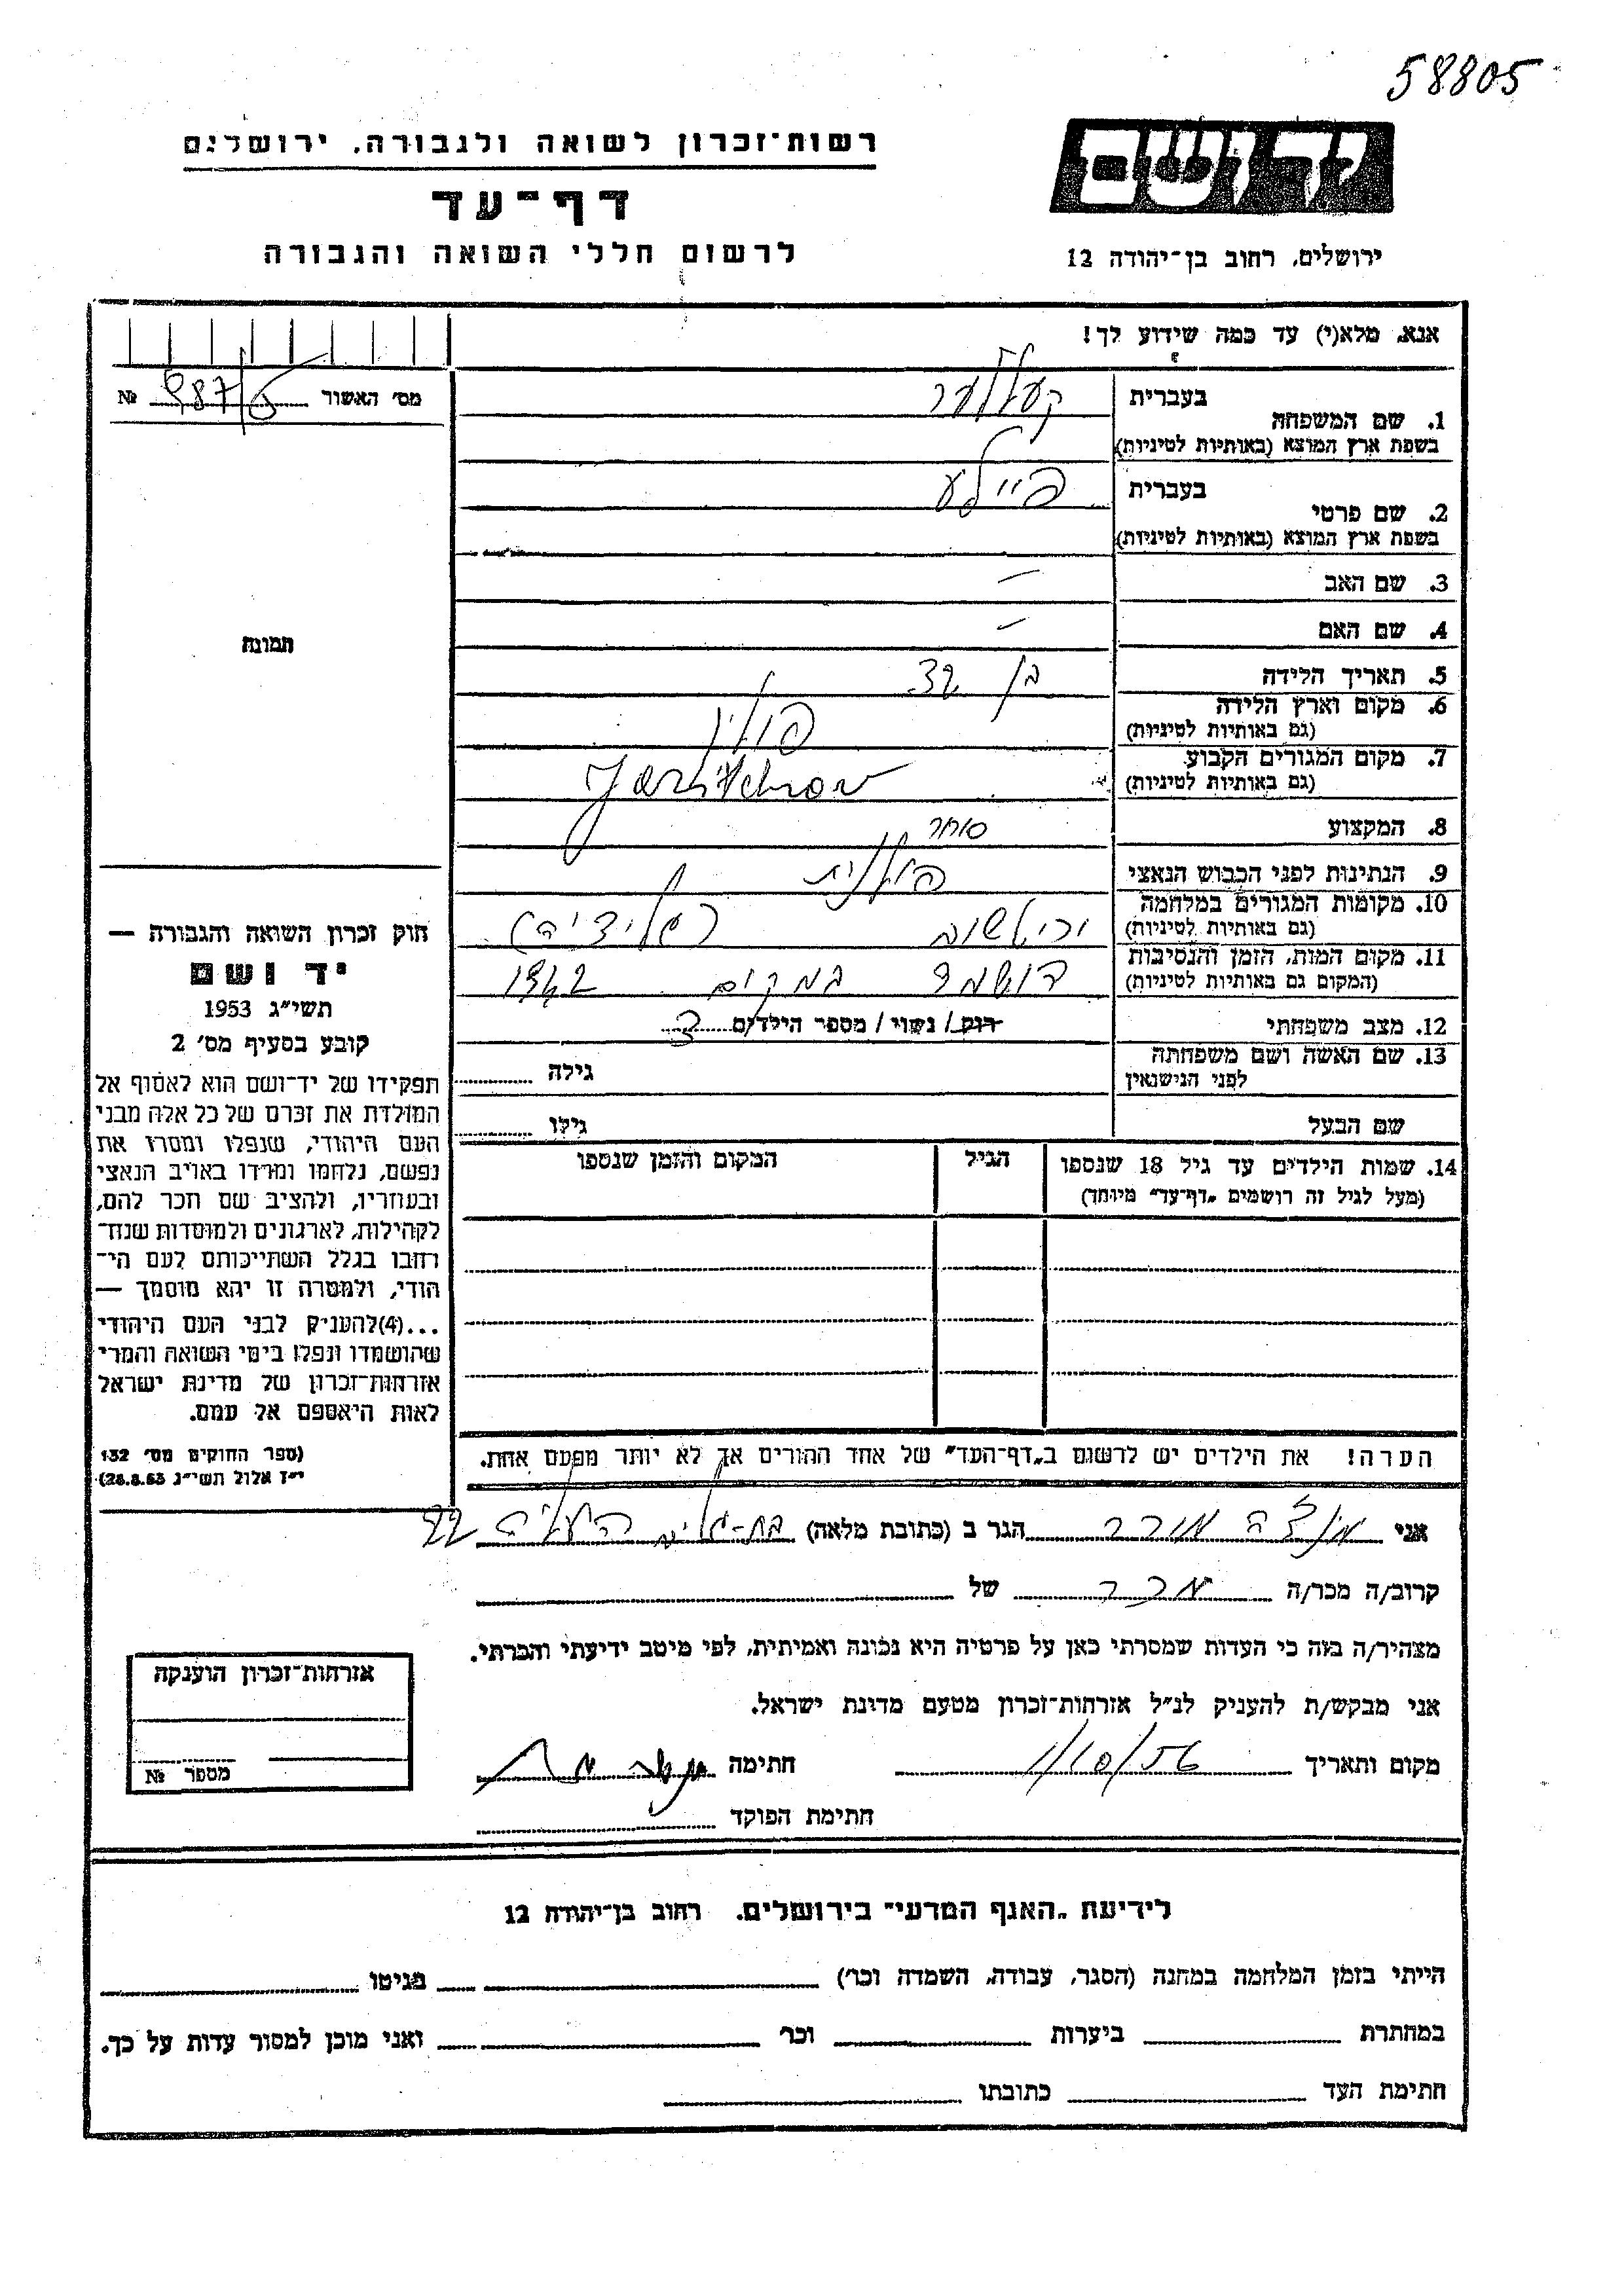 58805
יד ושם
ירושלים, רחוב בן־יהודה 12
רשות־זכרון לשואה ולגבורה, ירושלים
דף־עד
לרשום חללי השואה והגבורה
אנא, מלא(י) עד כמה שידוע לך!
מס׳ האשור № 987/
1. שם המשפחה בעברית קעללער
בשפת ארץ המוצא (באותיות לטיניות)
2. שם פרטי בעברית פיילע
בשפת ארץ המוצא (באותיות לטיניות)
3. שם האב –
4. שם האם –
5. תאריך הלידה בן 32
6. מקום וארץ הלידה פולין
(גם באותיות לטיניות)
7. מקום המגורים הקבוע
(גם באותיות לטיניות)
8. המקצוע סוחר
9. הנתינות לפני הכבוש הנאצי פולנית
10. מקומות המגורים במלחמה
(גם באותיות לטיניות)
11. מקום המות, הזמן והנסיבות הושמד במקום 1942
(המקום גם באותיות לטיניות)
12. מצב משפחתי רוק / נשוי / מספר הילדים 3
13. שם האשה ושם משפחתה
לפני הנישואין
גילה
שם הבעל גילו
14. שמות הילדים עד גיל 18 שנספו
(מעל לגיל זה רושמים „דף־עד” מיוחד)
הגיל
המקום והזמן שנספו
הערה! את הילדים יש לרשום ב„דף־העד” של אחד ההורים אך לא יותר מפעם אחת.
תמונה
חוק זכרון השואה והגבורה —
יד ושם
תשי״ג 1953
קובע בסעיף מס׳ 2
תפקידו של יד־ושם הוא לאסוף אל
המולדת את זכרם של כל אלה מבני
העם היהודי, שנפלו ומסרו את
נפשם, נלחמו ומרדו באויב הנאצי
ובעוזריו, ולהציב שם וזכר להם,
לקהילות, לארגונים ולמוסדות שנח־
רבו בגלל השתייכותם לעם הי־
הודי, ולמטרה זו יהא מוסמך —
...(4)להעניק לבני העם היהודי
שהושמדו ונפלו בימי השואה והמרי
אזרחות־זכרון של מדינת ישראל
לאות היאספם אל עמם.
(ספר החוקים מס׳ 132
י״ז אלול תשי״ג 28.8.53)
אני הגר ב (כתובת מלאה) בת-גלים העליה 22
קרוב/ה מכר/ה מכר של
מצהיר/ה בזה כי העדות שמסרתי כאן על פרטיה היא נכונה ואמיתית, לפי מיטב ידיעתי והכרתי.
אני מבקש/ת להעניק לנ״ל אזרחות־זכרון מטעם מדינת ישראל.
מקום ותאריך 1/10/56 חתימה
חתימת הפוקד
אזרחות־זכרון הוענקה
מספר №
לידיעת „האגף המדעי” בירושלים, רחוב בן־יהודה 12
הייתי בזמן המלחמה במחנה (הסגר, עבודה, השמדה וכו׳) בגיטו
במחתרת ביערות וכו׳ ואני מוכן למסור עדות על כך.
חתימת העד כתובתו